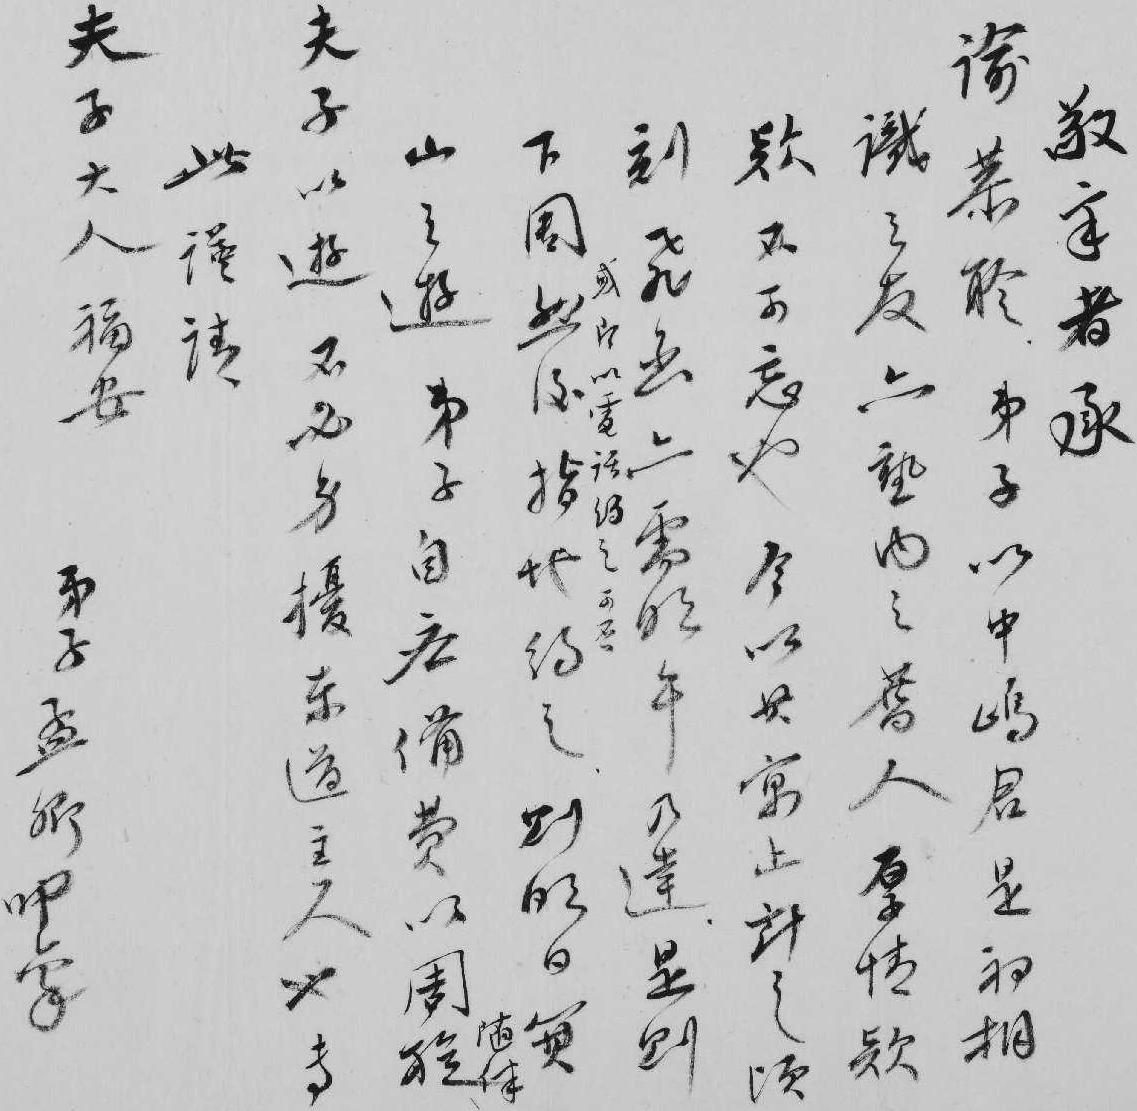 敬稟者承
諭恭聆弟子以中嶋君是初相
識之友亦塾内之舊人厚情款
款不可忘也今以其寓止計之頃
刻飛函亦需明午乃達是則
或即以電話約之可否
下周然後指地約之則明日箕
山之遊弟子自應備費以周旋
隨侍
夫子以遊不必另擾東道主人也專
此謹請
夫子大人福安
弟子孟卿叩稟